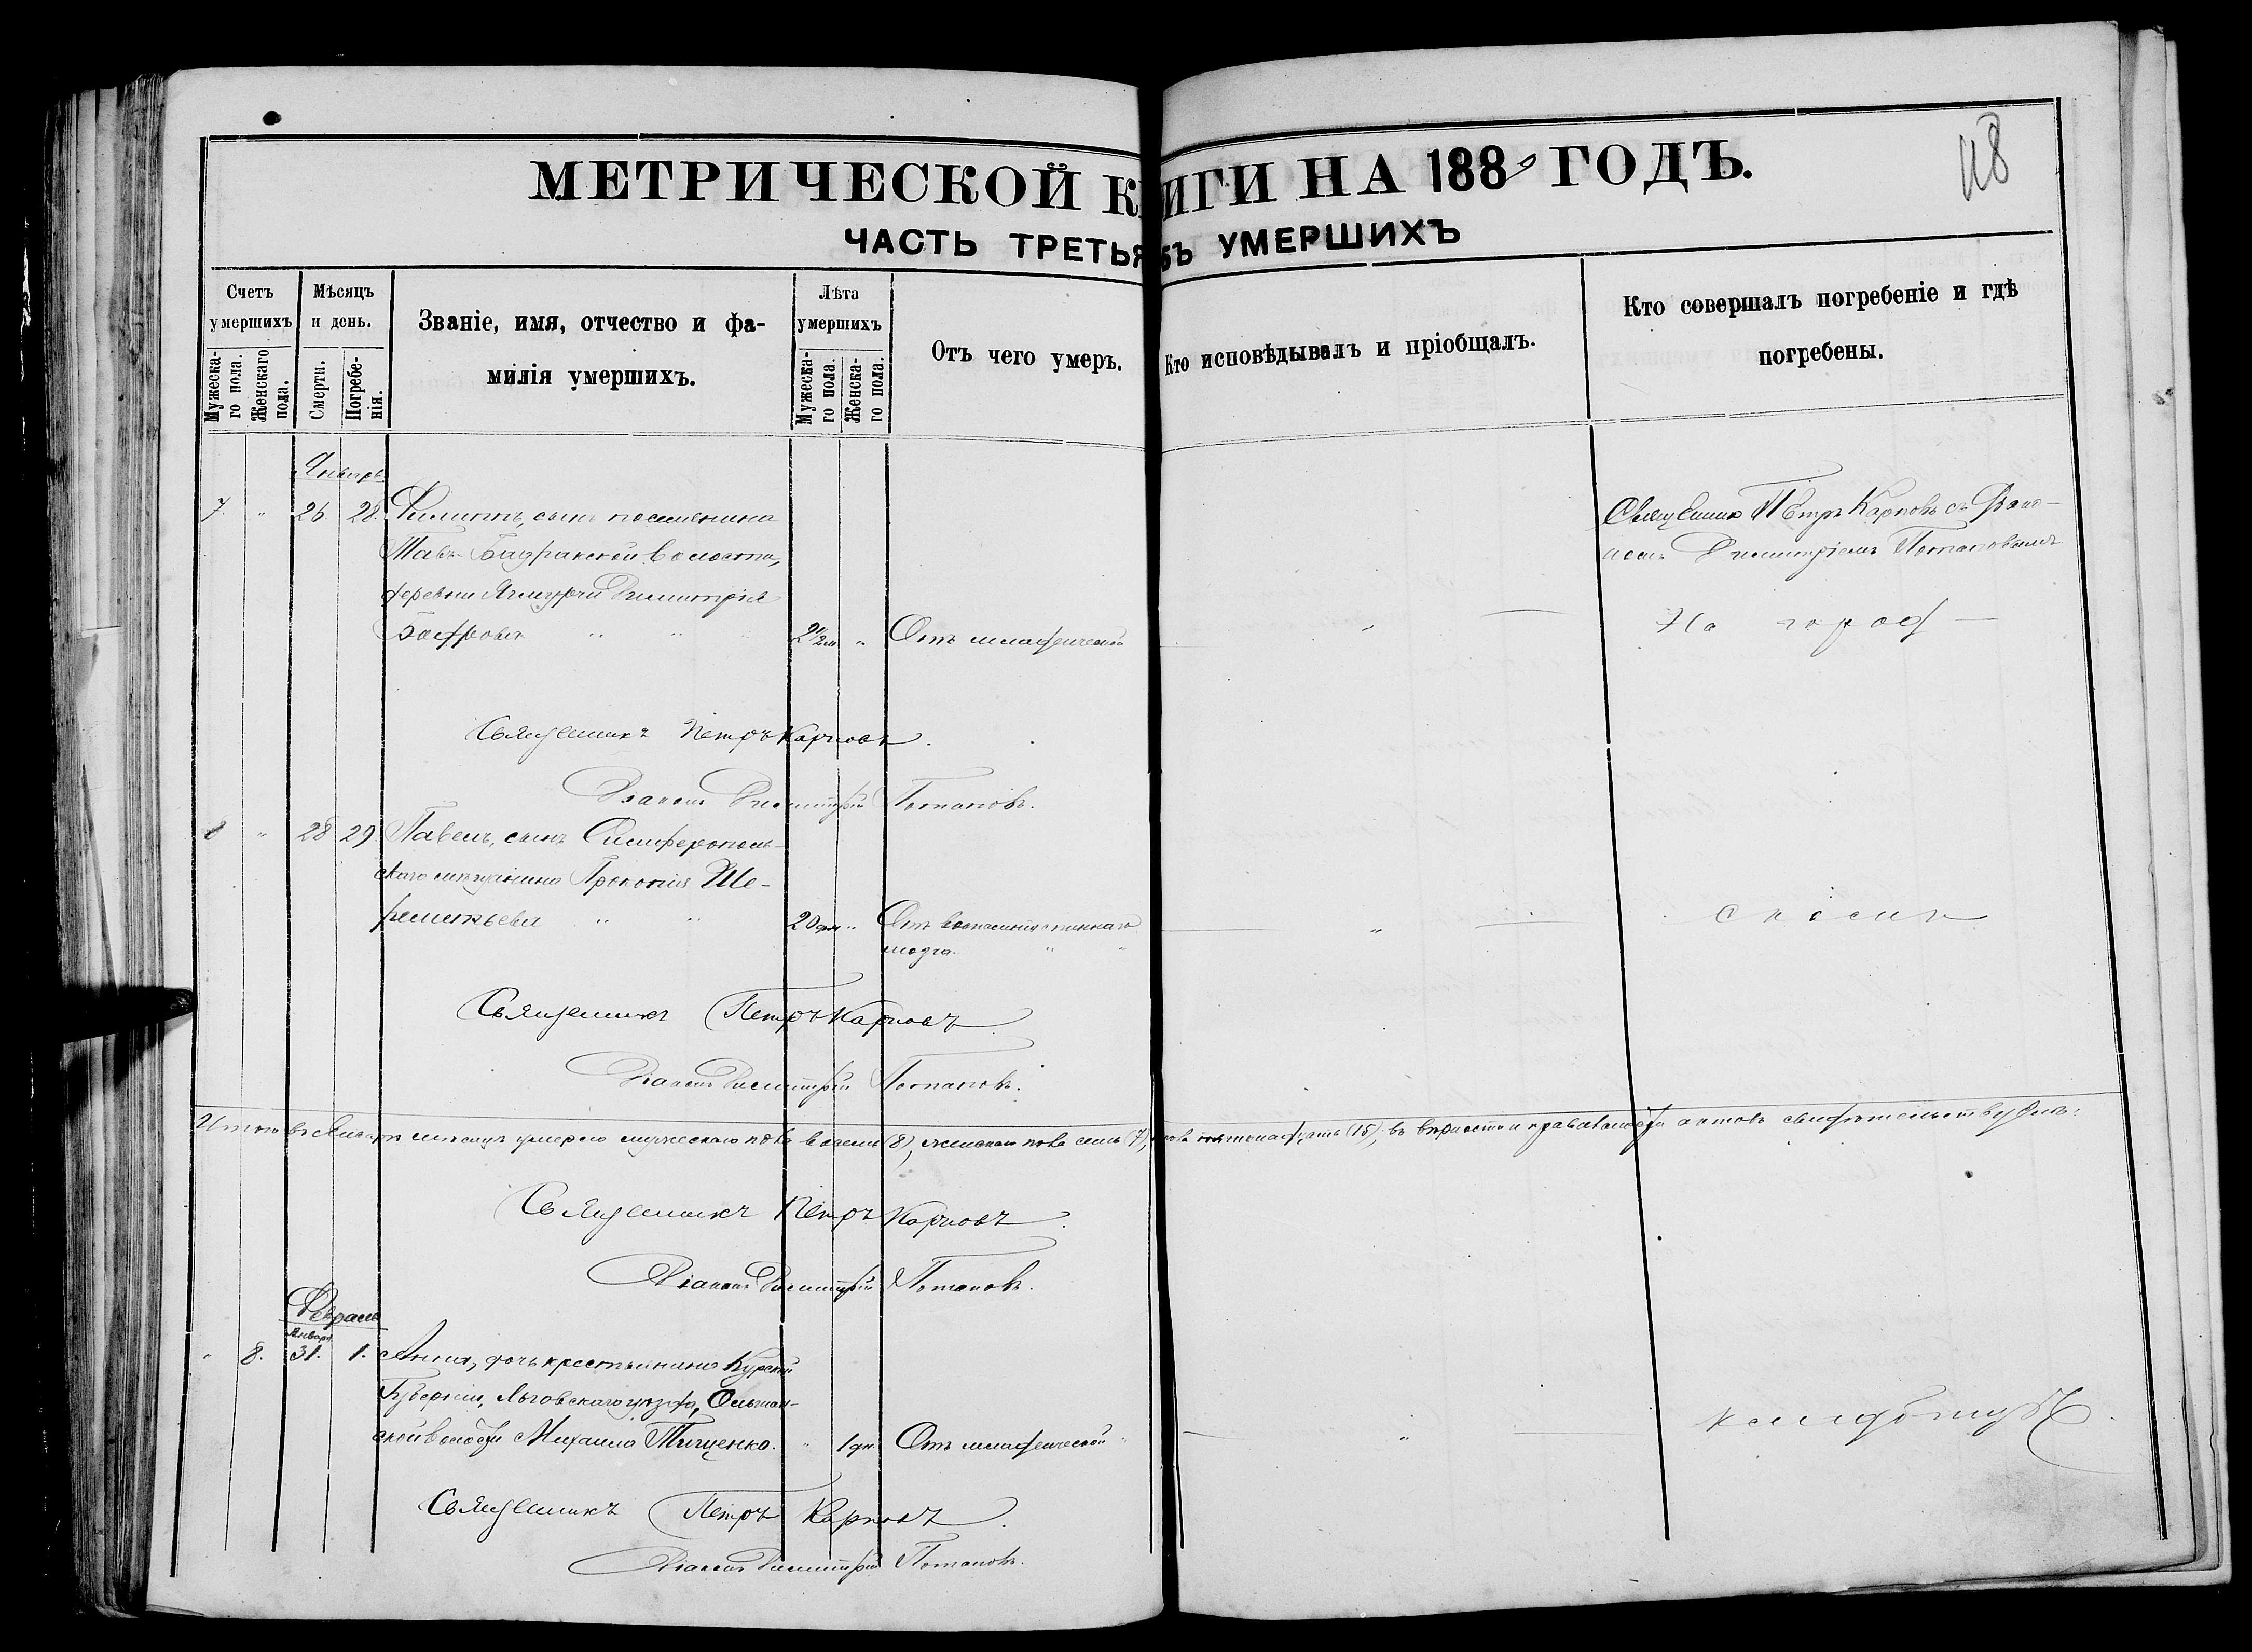 118
МЕТРИЧЕСКОЙ КНИГИ НА 188 ГОДЪ.
ЧАСТЬ ТРЕТЬЯ УМЕРШИХЪ
Счетъ умершихъ
Мужеска-го пола.
Женскаго пола.
Мѣсяцъ и день.
Смерти.
Погребе-нія.
Званіе, имя, отчество и фа-
милія умершихъ.
Лѣта умершихъ
Мужеска-го пола.
Женска-го пола.
Отъ чего умеръ.
Кто исповѣдывалъ и пріобщалъ.
Кто совершалъ погребеніе и гдѣ
погребены.
Январь
7. " 26 28. Филиппъ, сынъ поселянина
волости,
деревни Димитрія
" " 2 1/2 м " Отъ младенческой
Священникъ Петръ Карповъ съ Діако-
номъ Димитріемъ Потаповымъ
На город
Священникъ Петръ Карповъ.
Діаконъ Димитрій Потаповъ.
8 " 28 29. Павелъ, сынъ Симферополь-
скаго мѣщанина Прокопія Ше-
реметьева " " 20 дн " Отъ воспаленія спиннаго
мозга. " "
Священникъ Петръ Карповъ
Діаконъ Димитрій Потаповъ.
Итого въ Январѣ мѣсяцѣ умерло мужескаго пола восемь (8), женскаго пола семь (7), пятнадцать (15); въ вѣрности и актовъ свидѣтельствуемъ:
Священникъ Петръ Карповъ.
Діаконъ Димитрій Потаповъ.
Февраль
Январ.
" 8. 31. 1. Анна, дочь крестьянина Курской
Губерніи, Льговскаго уѣзда, Ольшан-
ской волости Михаила Тищенко. " 1 дн Отъ младенческой "
кладбищѣ.
Священникъ Петръ Карповъ.
Діаконъ Димитрій Потаповъ.